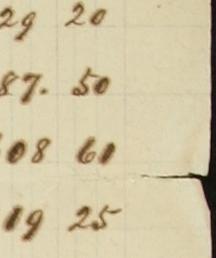 29 20
87. 50
08 61
19 25